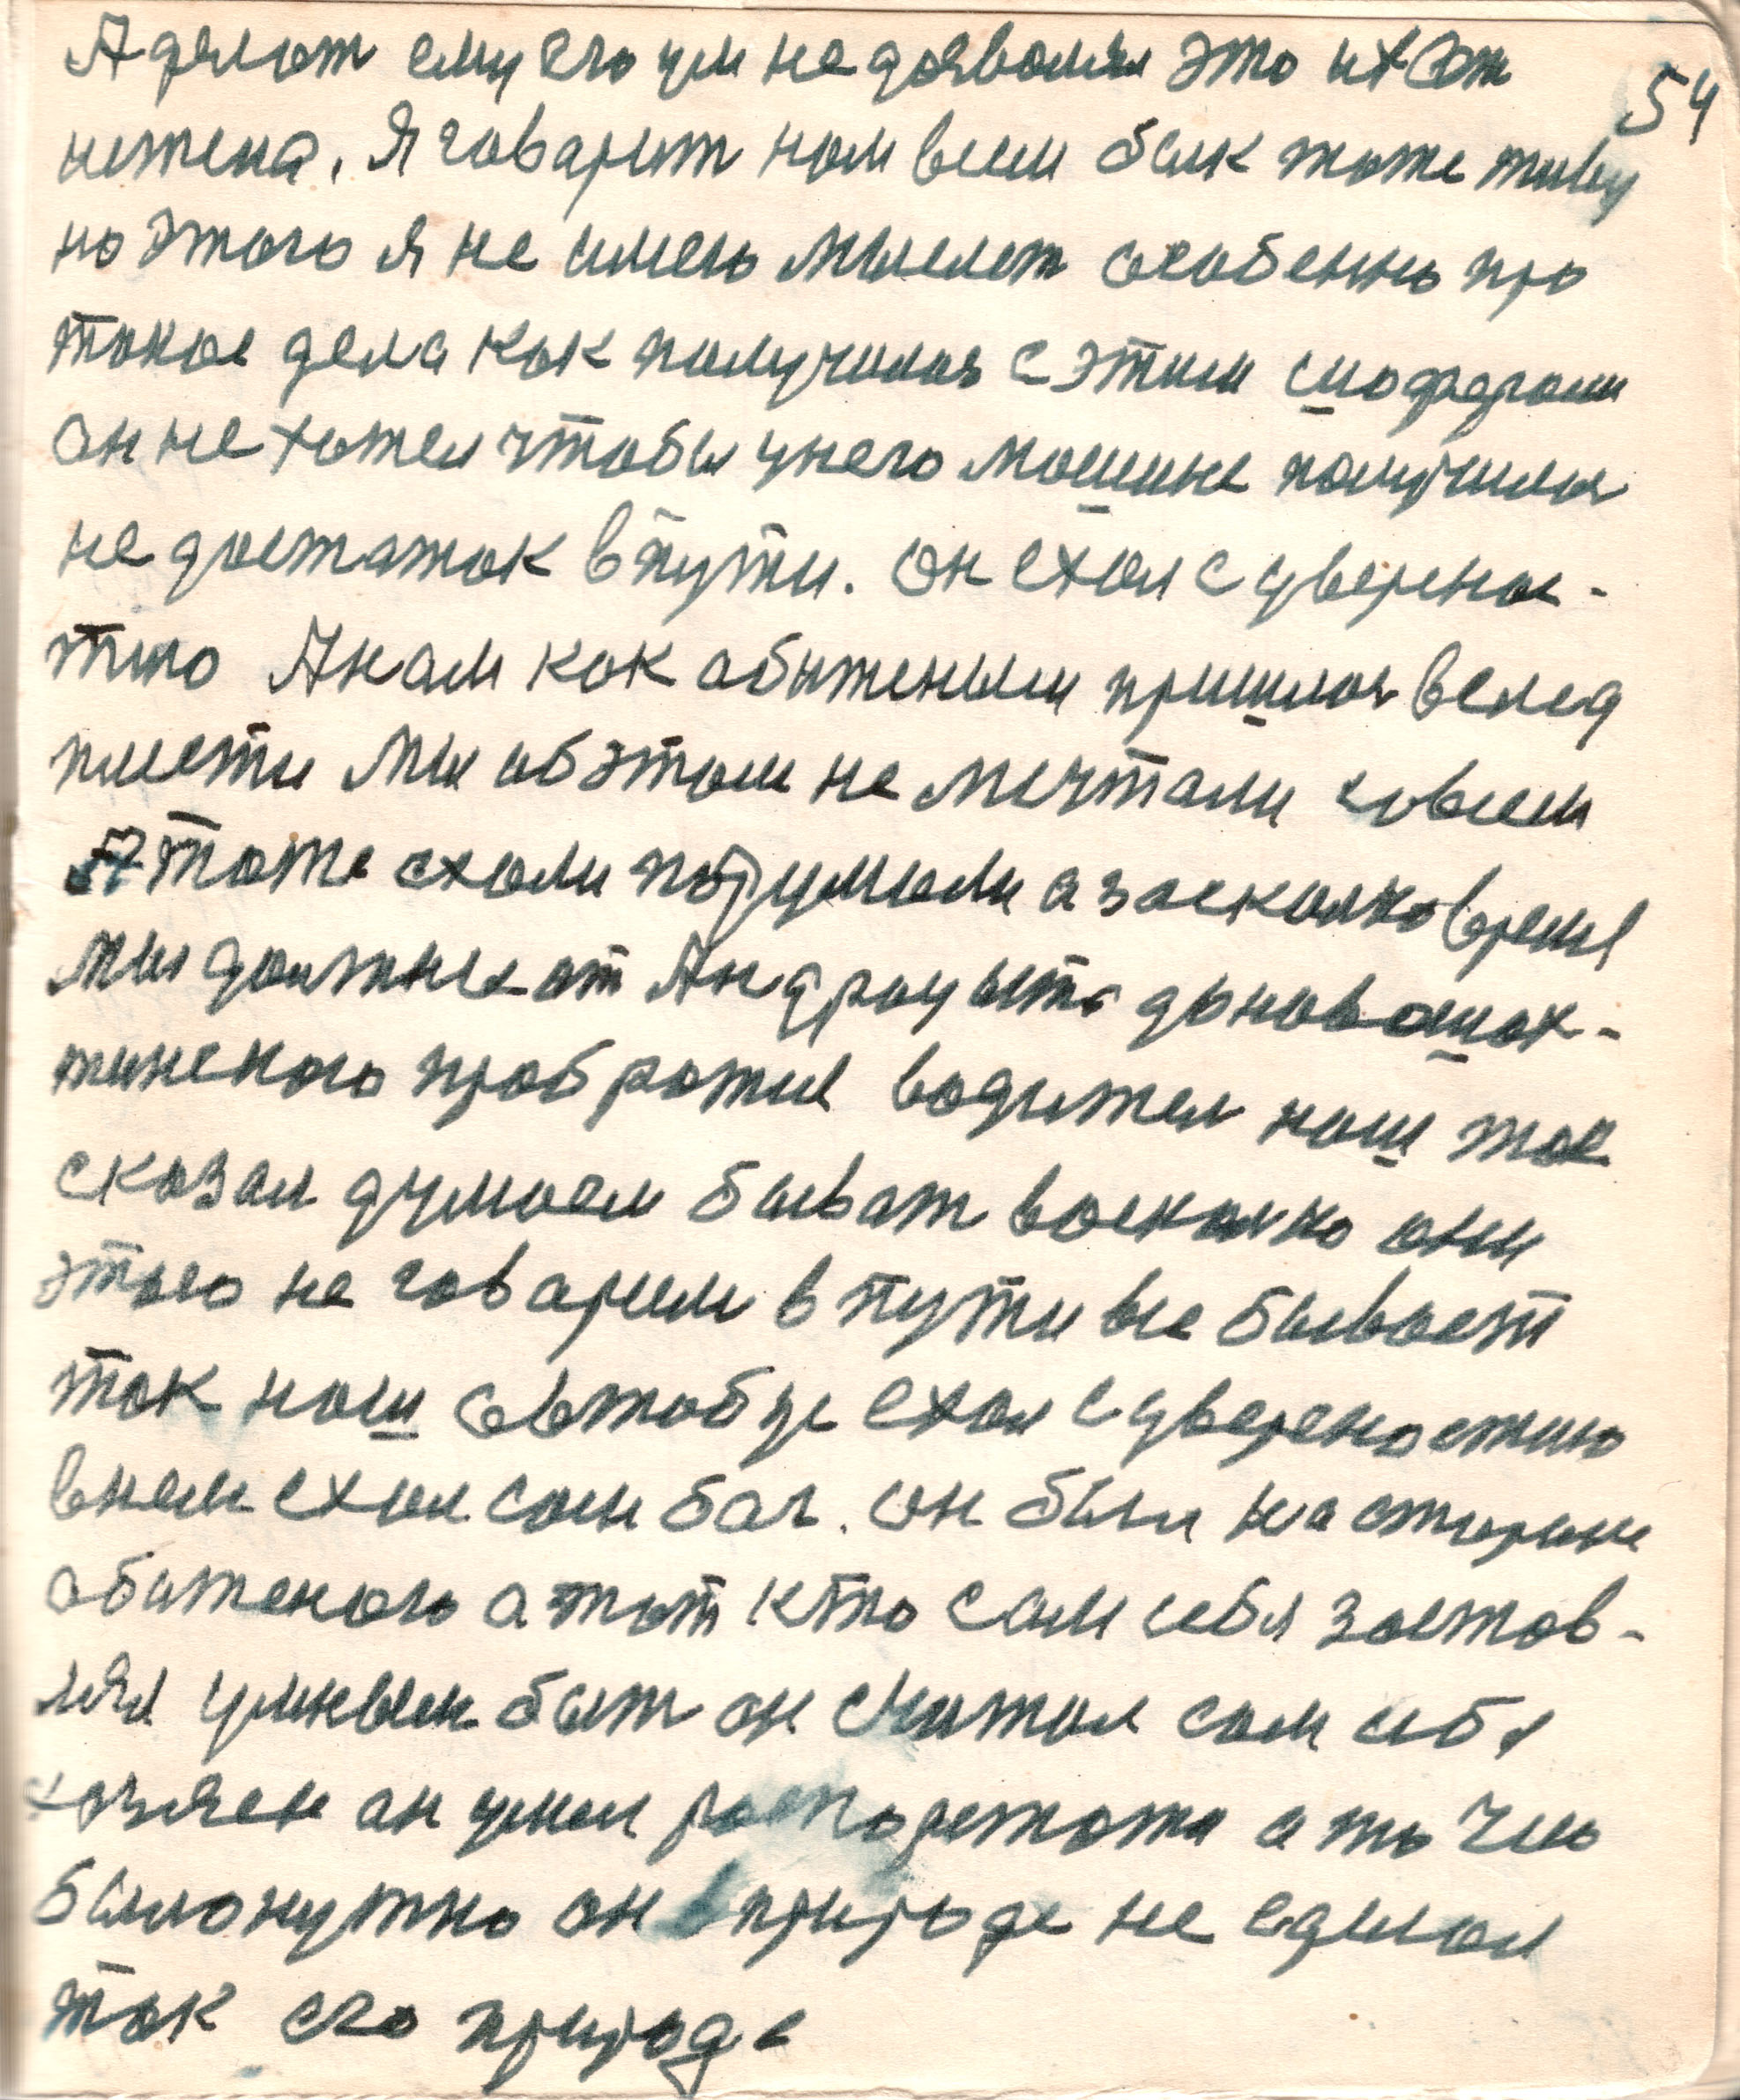 54
А делат ему его ум не дозволял это их
нежена, Я говарит нам всем бык тоже живу
но этого я не имею мыслет особеннь про
такое дела как получился с этим шофером
он не хотел чтобы унего машине получился
не достаток в пути. Он ехал с уверенос-
тию А нам как абиженым пришлос вслед
ползти мы об этом не мечтали совсем
А тоже ехали подумали а засколко время
мы должные от до новошах-
тинского пробратие водител наш так
сказал думаем быват восколко они
этого не говарили в пути все бывает
так наш автобус ехал сувереностию
внем ехал сам бог. он был на стороне
абиженого а тот кто сам себя застов-
лял умным быт он считал сам себя
хозяен ан умел распорежатя а то что
былонужно он в природе не сделал
так его природе